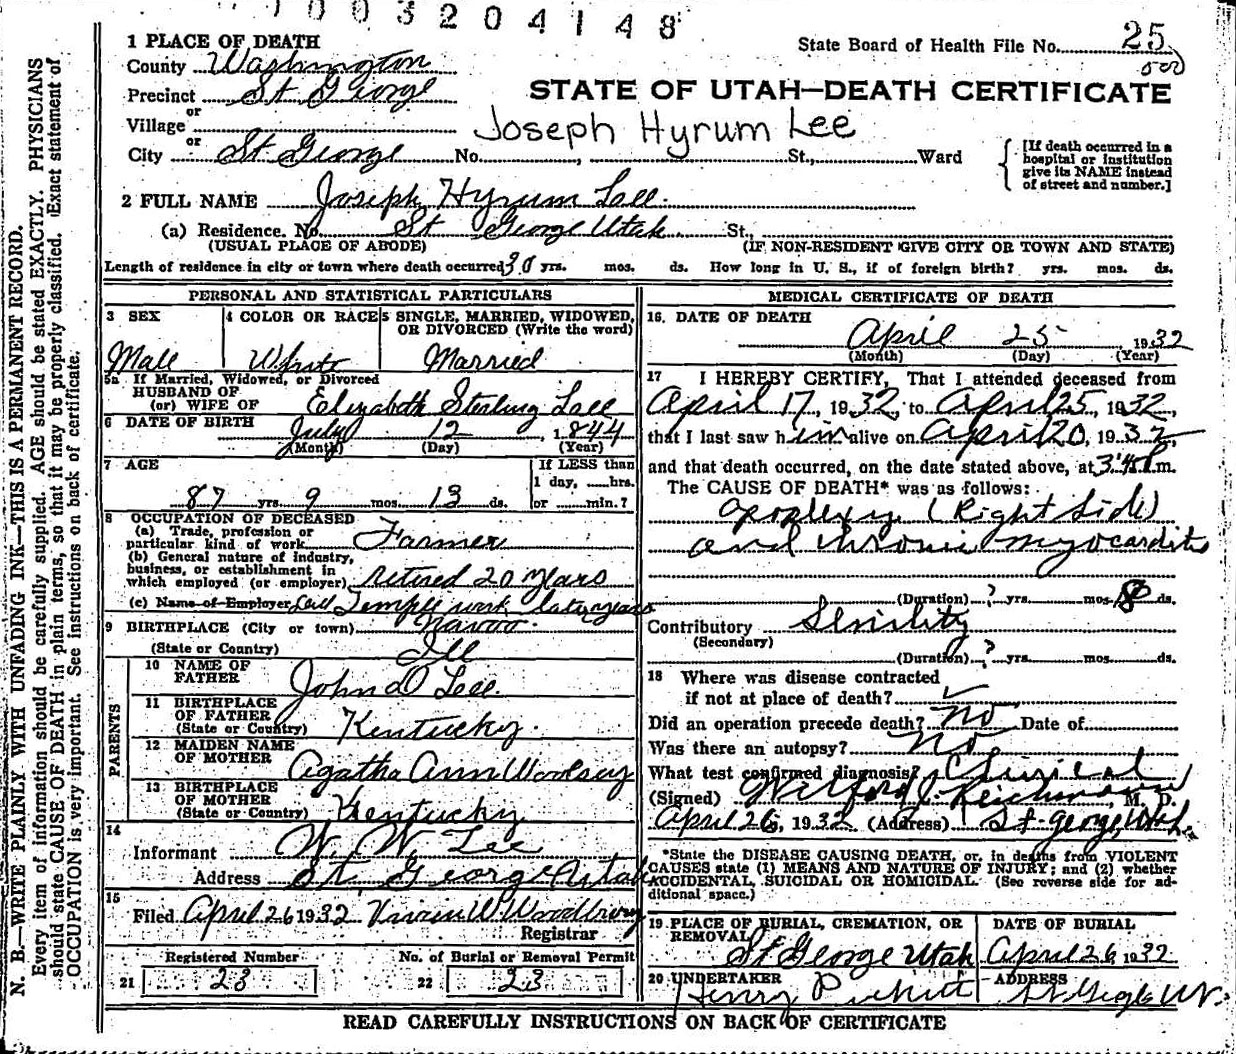 1003204148
1 PLACE OF DEATH
State Board of Health File No. 25
County Washington
Precinct St George
STATE OF UTAH—DEATH CERTIFICATE
or
Village
Joseph Hyrum Lee
or
City St. George No. , St., Ward
[If death occurred in a hospital or institution give its NAME instead of street and number.]
2 FULL NAME Joseph Hyrum Lee.
(a) Residence. No. St George Utah St.,
(USUAL PLACE OF ABODE) (IF NON-RESIDENT GIVE CITY OR TOWN AND STATE)
Length of residence in city or town where death occurred 30 yrs. mos. ds. How long in U. S., if of foreign birth? yrs. mos. ds.
PERSONAL AND STATISTICAL PARTICULARS
3 SEX 4 COLOR OR RACE 5 SINGLE, MARRIED, WIDOWED,
OR DIVORCED (Write the word)
Male White Married
5a If Married, Widowed, or Divorced
HUSBAND OF
(or) WIFE OF Elizabeth Sterling Lee
6 DATE OF BIRTH July 12, 1844
(Month) (Day) (Year)
7 AGE If LESS than
1 day, hrs.
87 yrs. 9 mos. 13 ds. or min.?
8 OCCUPATION OF DECEASED
(a) Trade, profession or
particular kind of work Farmer
(b) General nature of industry,
business, or establishment in
which employed (or employer) retired 20 years
(c) Name of Employer Temple work later years
9 BIRTHPLACE (City or town) Navoo.
(State or Country) Ill
PARENTS
10 NAME OF
FATHER John D Lee.
11 BIRTHPLACE
OF FATHER
(State or Country) Kentucky.
12 MAIDEN NAME
OF MOTHER Agatha Ann Woolsey
13 BIRTHPLACE
OF MOTHER
(State or Country) Kentucky
14
Informant W. W. Lee
Address St. George Utah
15
Filed April 26 1932 Vivian W. Woodbury
Registrar
Registered Number No. of Burial or Removal Permit
21 23 22 23
MEDICAL CERTIFICATE OF DEATH
16. DATE OF DEATH
April 25 1932
(Month) (Day) (Year)
17 I HEREBY CERTIFY, That I attended deceased from
April 17, 1932, to April 25, 1932,
that I last saw him alive on April 20, 1932,
and that death occurred, on the date stated above, at 3:45 P.m.
The CAUSE OF DEATH* was as follows:
apoplexy (Right Side)
and chronic myocarditis
(Duration) ? yrs. mos. 8 ds.
Contributory Senility
(Secondary)
(Duration) ? yrs. mos. ds.
18 Where was disease contracted
if not at place of death?
Did an operation precede death? No Date of
Was there an autopsy? No
What test confirmed diagnosis? Clinical
(Signed) Wilford J. Reichmann, M. D.
April 26, 1932 (Address) St. George, Utah.
*State the DISEASE CAUSING DEATH, or, in deaths from VIOLENT
CAUSES state (1) MEANS AND NATURE OF INJURY; and (2) whether
ACCIDENTAL, SUICIDAL OR HOMICIDAL. (See reverse side for ad-
ditional space.)
19 PLACE OF BURIAL, CREMATION, OR DATE OF BURIAL
REMOVAL
St George Utah April 26 1932
20 UNDERTAKER ADDRESS
Henry Pickett St George Ut.
READ CAREFULLY INSTRUCTIONS ON BACK OF CERTIFICATE
N. B.—WRITE PLAINLY WITH UNFADING INK—THIS IS A PERMANENT RECORD.
Every item of information should be carefully supplied. AGE should be stated EXACTLY. PHYSICIANS
should state CAUSE OF DEATH in plain terms, so that it may be properly classified. Exact statement of
OCCUPATION is very important. See instructions on back of certificate.